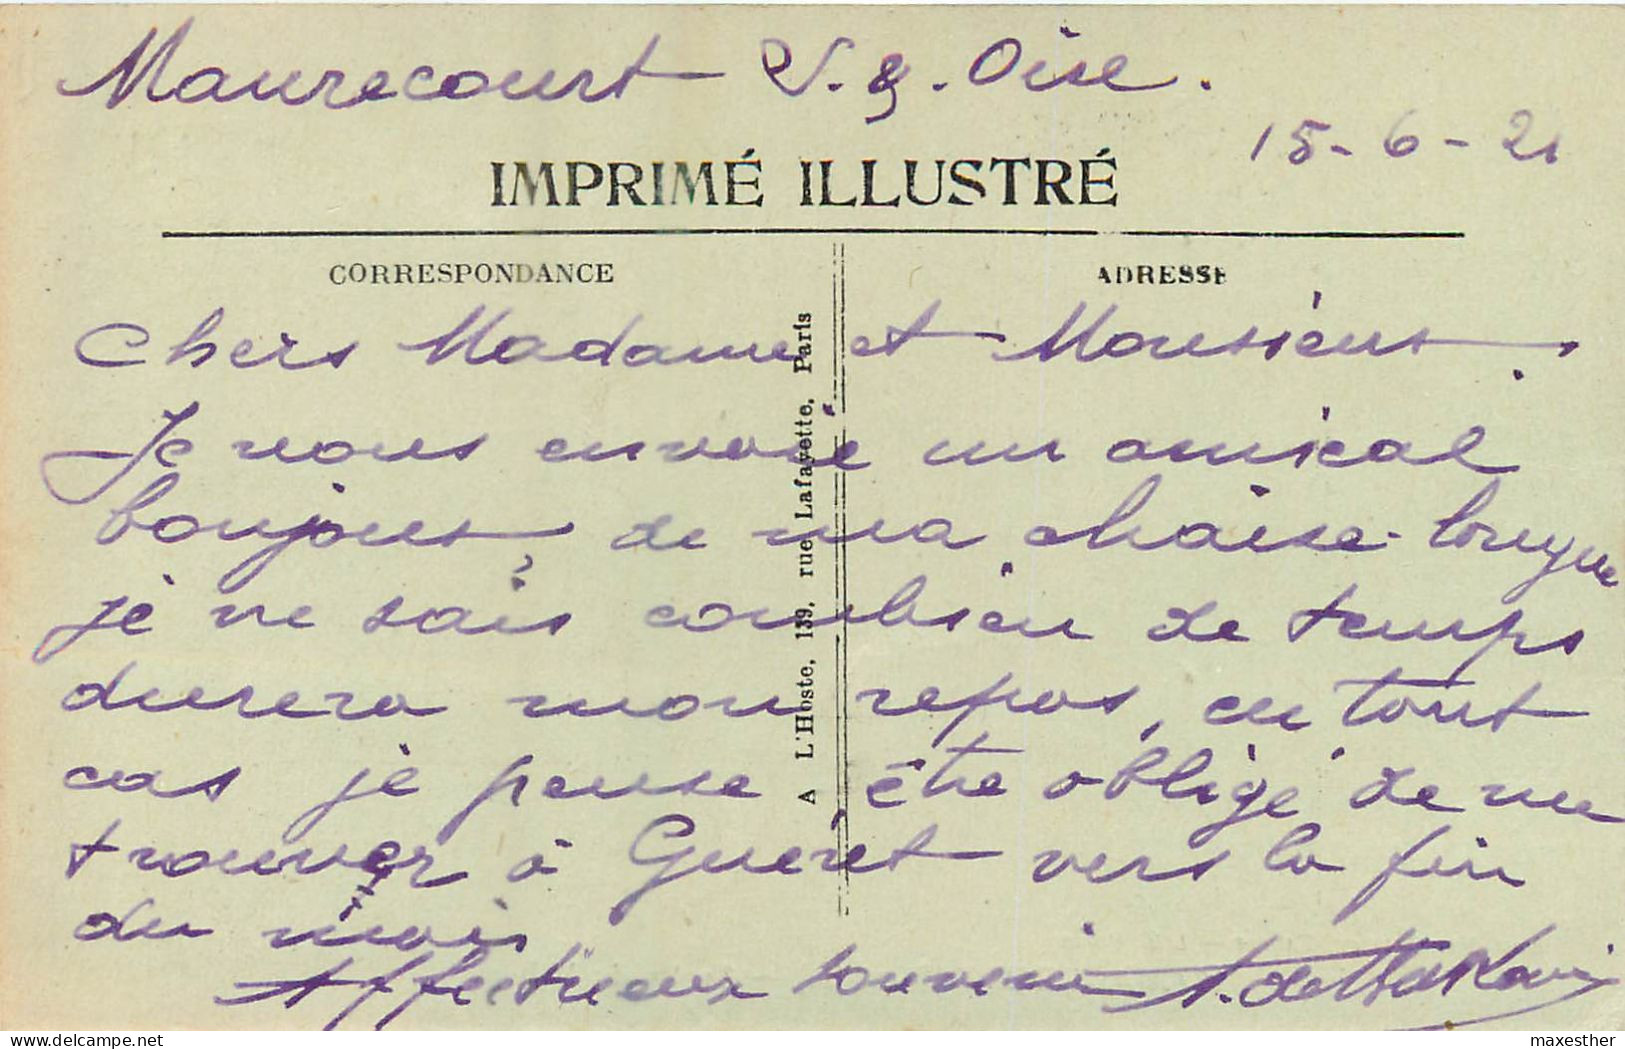 Maurecourt S. & . Oise .
15-6-21
IMPRIMÉ ILLUSTRÉ
CORRESPONDANCE
ADRESSE
A L'Hoste, 139, rue Lafayette, Paris
Chers Madame et Monsieur
Je vous envoie un amical
bonjour, de ma chaise-longue
je ne sais combien de temps
durera mon repos, en tout
cas je pense être obligé de me
trouver à Guéret vers la fin
du mois
Affectueux souvenir
Delcampe.net
maxesther